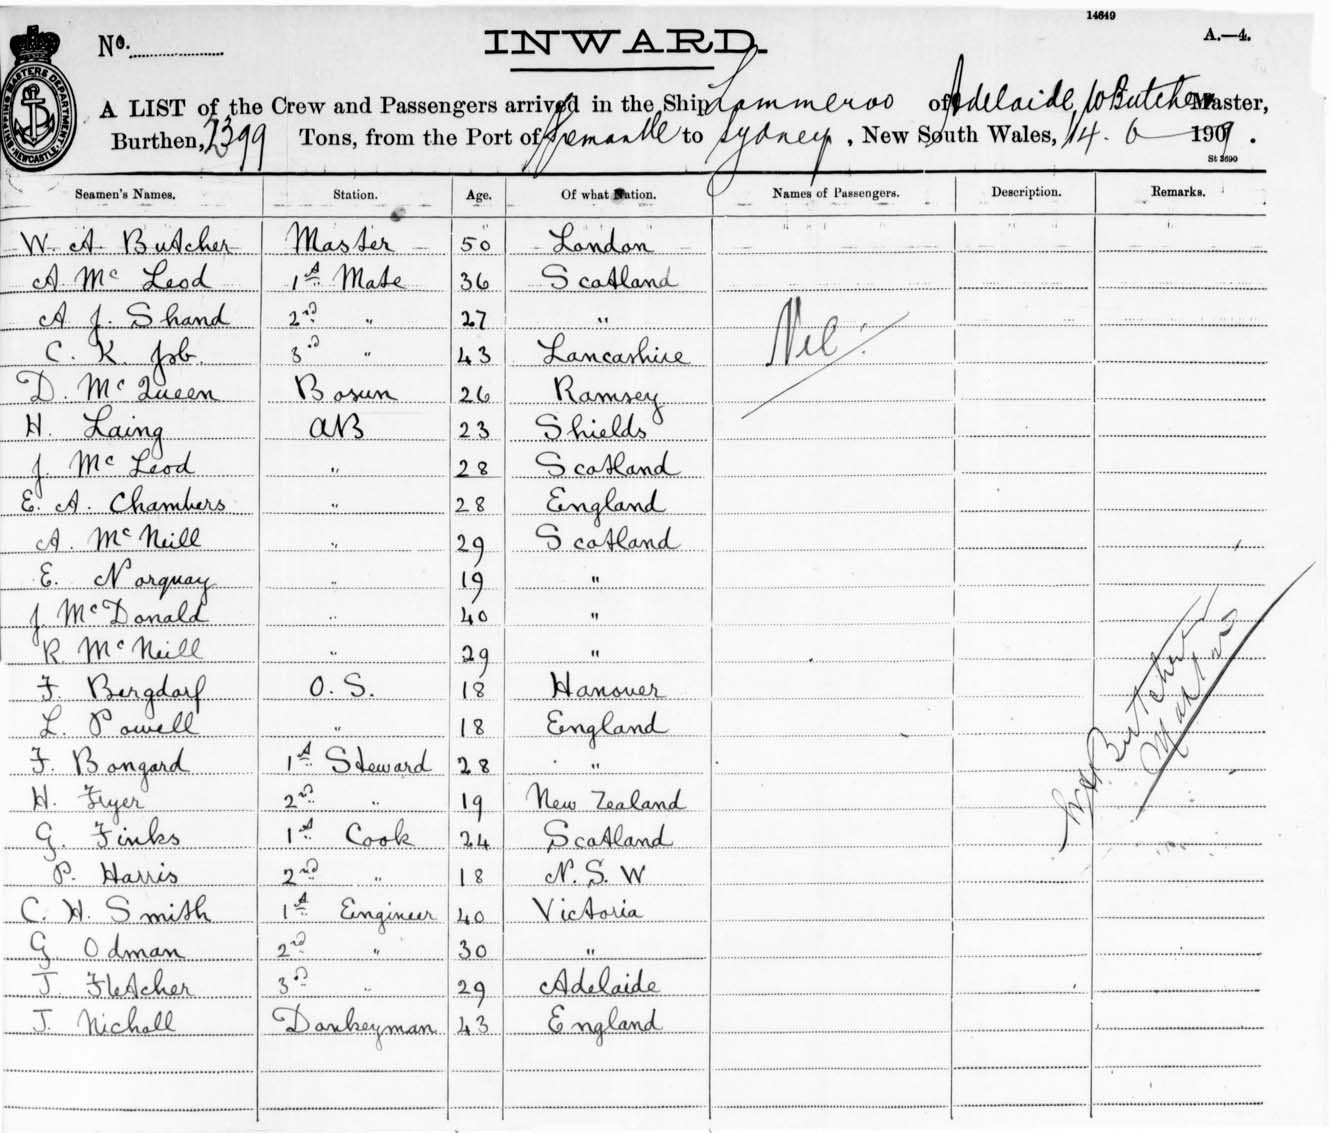 14649
No. INWARD. A.—4.
SHIPPING MASTERS DEPARTMENT NEWCASTLE
A LIST of the Crew and Passengers arrived in the Ship of Adelaide, W Butcher Master,
Burthen, 2399 Tons, from the Port of Fremantle to Sydney, New South Wales, 14. 6 1907.
St 3690
Seamen's Names. Station. Age. Of what Nation. Names of Passengers. Description. Remarks.
W. A. Butcher Master 50 London
A Mc Leod 1st Mate 36 Scotland
A J. Shand 2nd " 27 "
C. K. Job 3rd " 43 Lancashire Nil
D. Mc Queen Bosun 26 Ramsey
H. Laing AB 23 Shields
J. Mc Leod " 28 Scotland
E. A. Chambers " 28 England
A. McNeill " 29 Scotland
E. Norquay " 19 "
J. McDonald " 40 "
R. McNeill " 29 "
F. Bergdorf O. S. 18 Hanover
L. Powell " 18 England
F. Bongard 1st Steward 28 "
H. Fryer 2nd " 19 New Zealand
G. Finks 1st Cook 24 Scotland
P. Harris 2nd " 18 N. S. W
C. H. Smith 1st Engineer 40 Victoria
G Odman 2nd " 30 "
J. Fletcher 3rd " 29 Adelaide
J. Nicholl Donkeyman 43 England
WA Butcher
Master